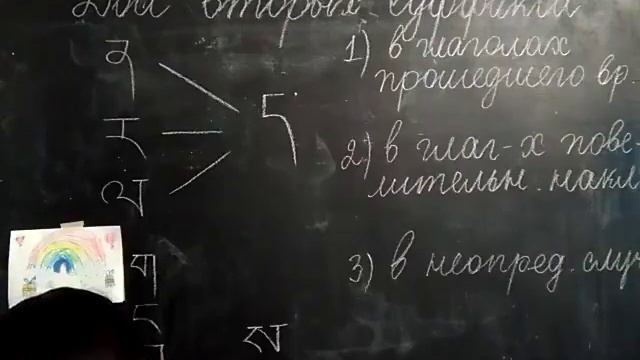 Два вторых суффикса
ན
ར
ལ
ད
ག
ང
ས
1) в глаголах
прошедшего вр
2) в глаг-х пове-
лительн. накл
3) в неопред. случ